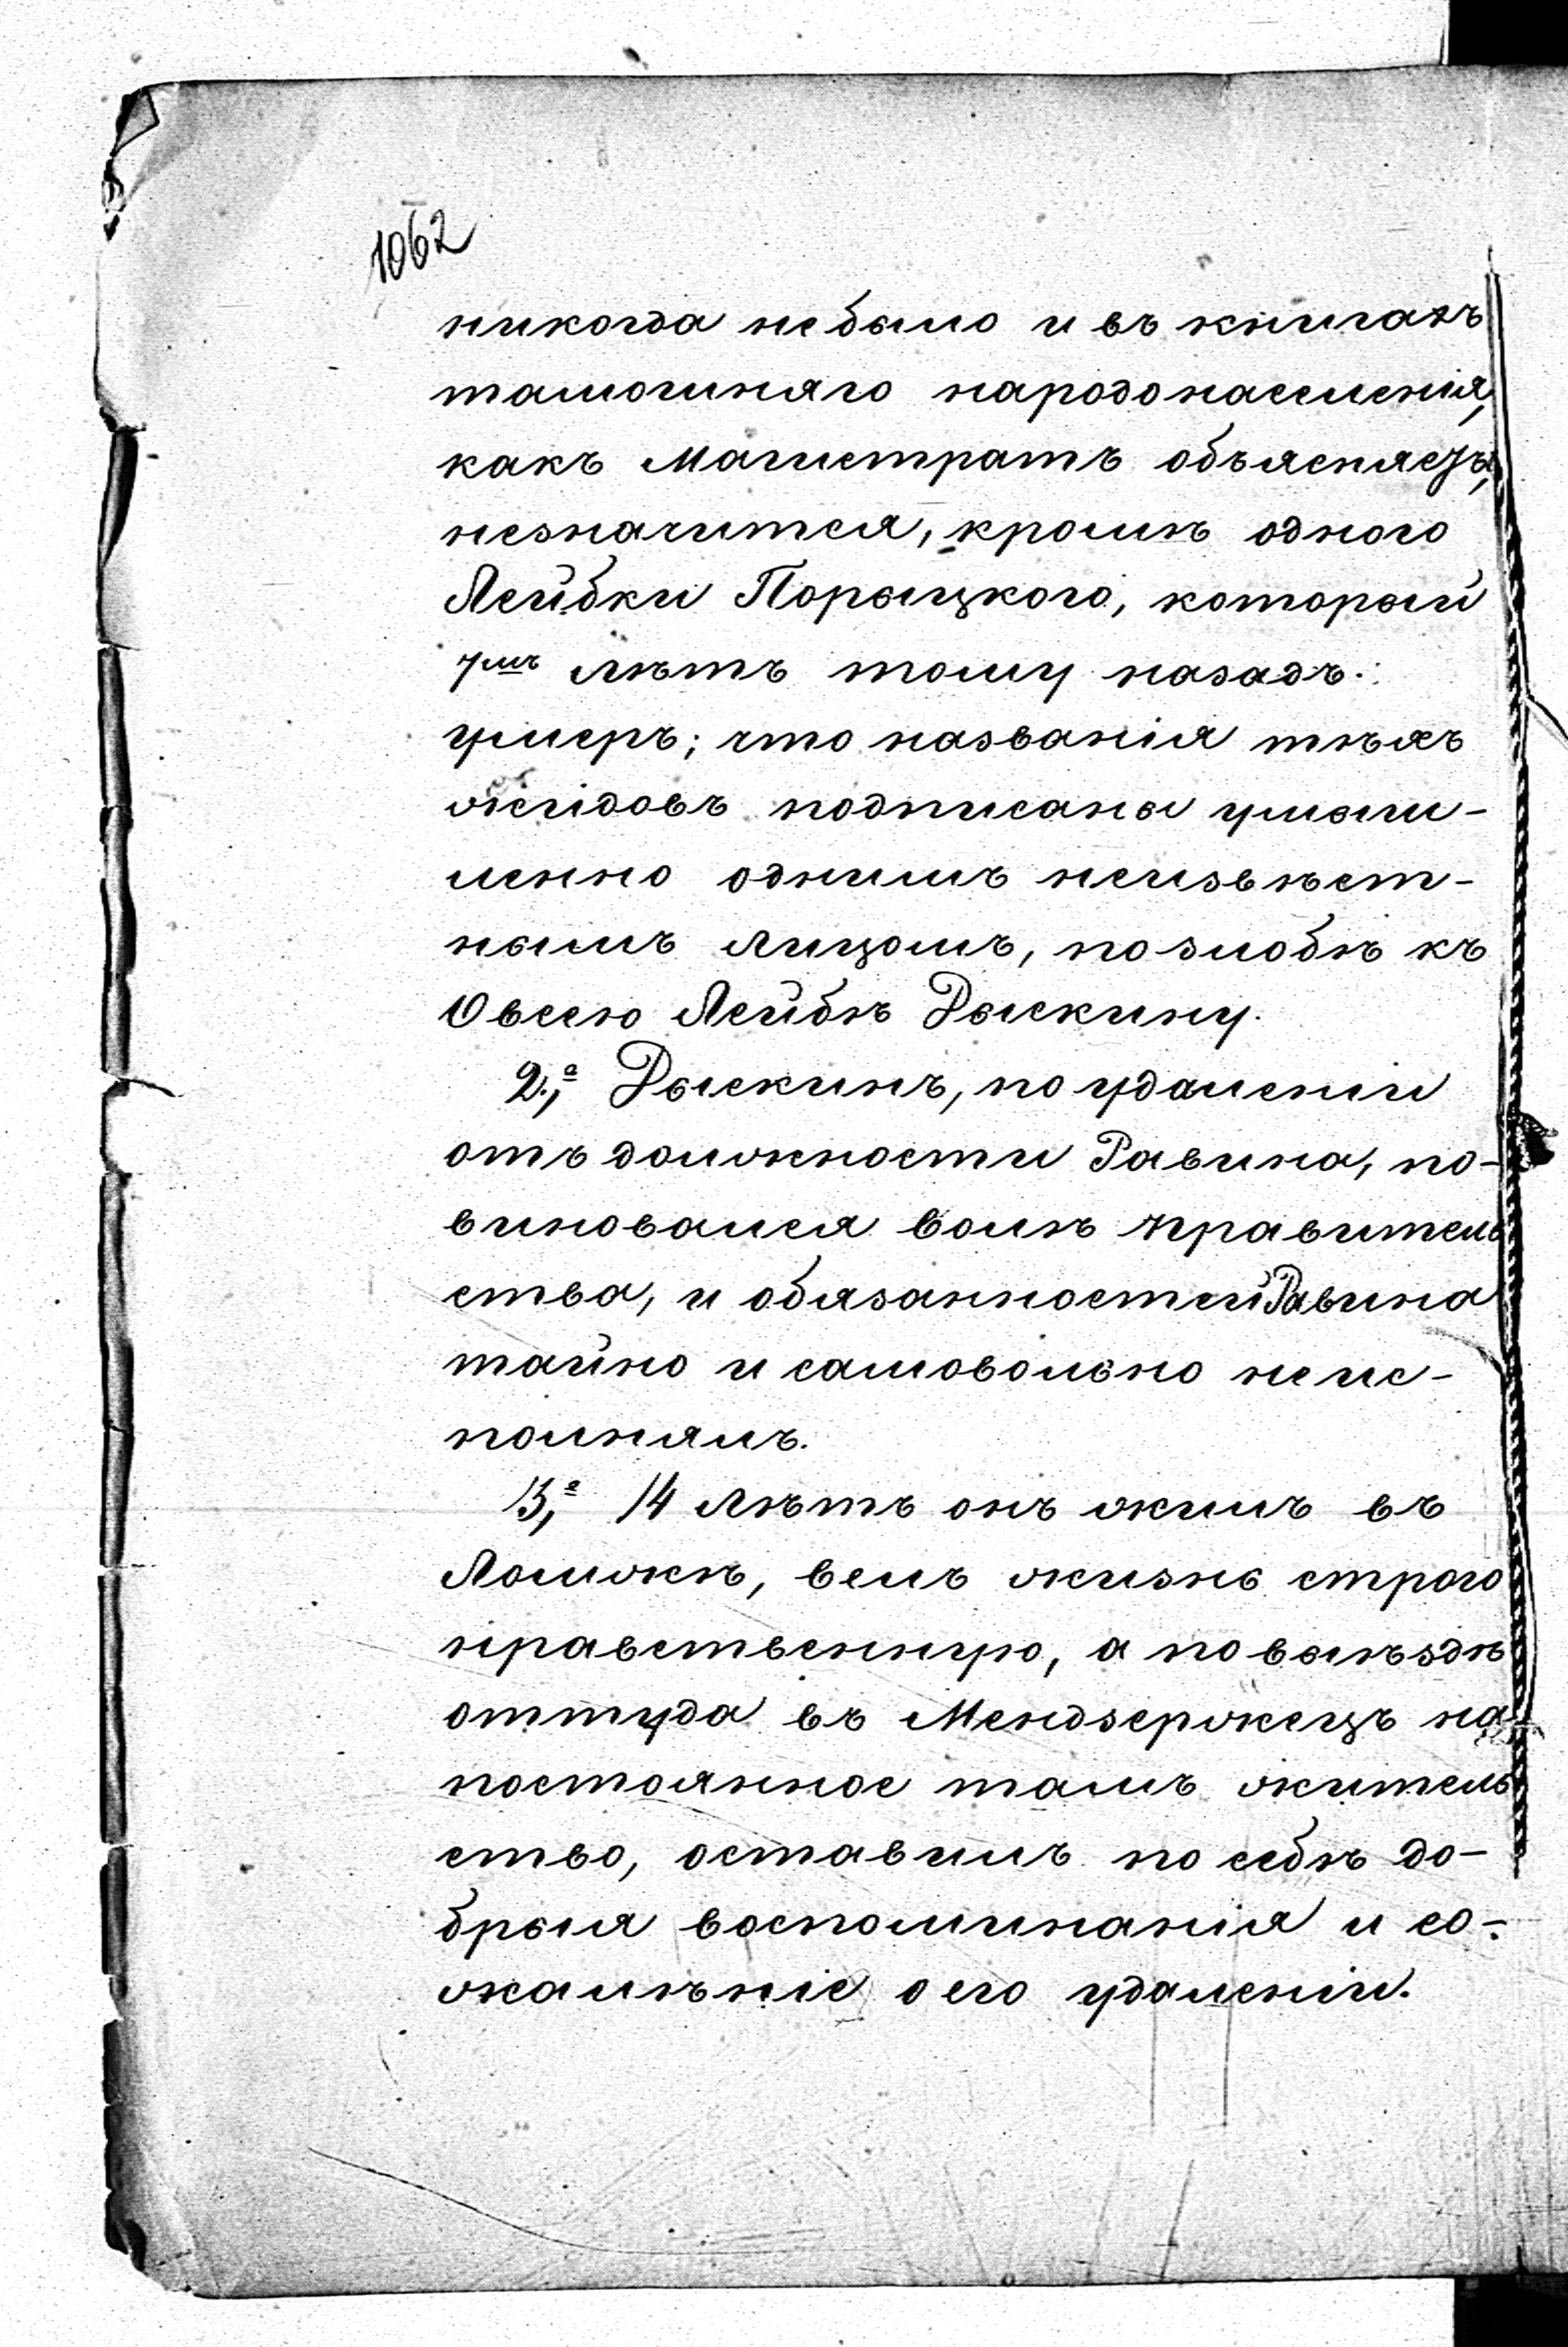 1062
никогда небыло и въ книгахъ
тамошняго народонаселенія,
какъ Магистратъ объясняетъ,
незначится, кромѣ одного
Лейбки Порыцкого, который
7мь лѣтъ тому назадъ
умеръ; что названія тѣхъ
жидовъ подписаны умыш-
ленно однимъ неизвѣст-
нымъ лицомъ, по злобѣ къ
Овсею Лейбѣ Рыскину.
2.,е Рыскинъ, по удаленіи
отъ должности Равина, по-
виновался волѣ правитель
ства, и обязанностей Равина
тайно и самовольно неис-
полнялъ.
3,е 14 лѣтъ онъ жилъ въ
Ломжѣ, велъ жизнь строго
нравственную, а по выѣздѣ
оттуда въ Мендзержецъ на
постоянное тамъ житель
ство, оставилъ по себѣ до-
брыя воспоминанія и со-
жалѣніе о его удаленіи.